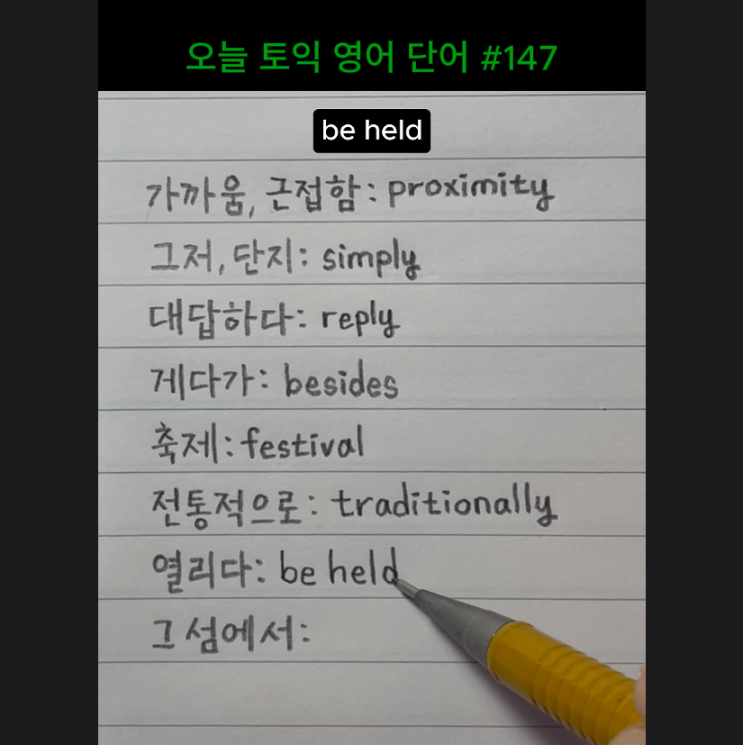 오늘 토익 영어 단어 #147
be held
가까움, 근접함: proximity
그저, 단지: simply
대답하다: reply
게다가: besides
축제: festival
전통적으로: traditionally
열리다: be held
그 섬에서: